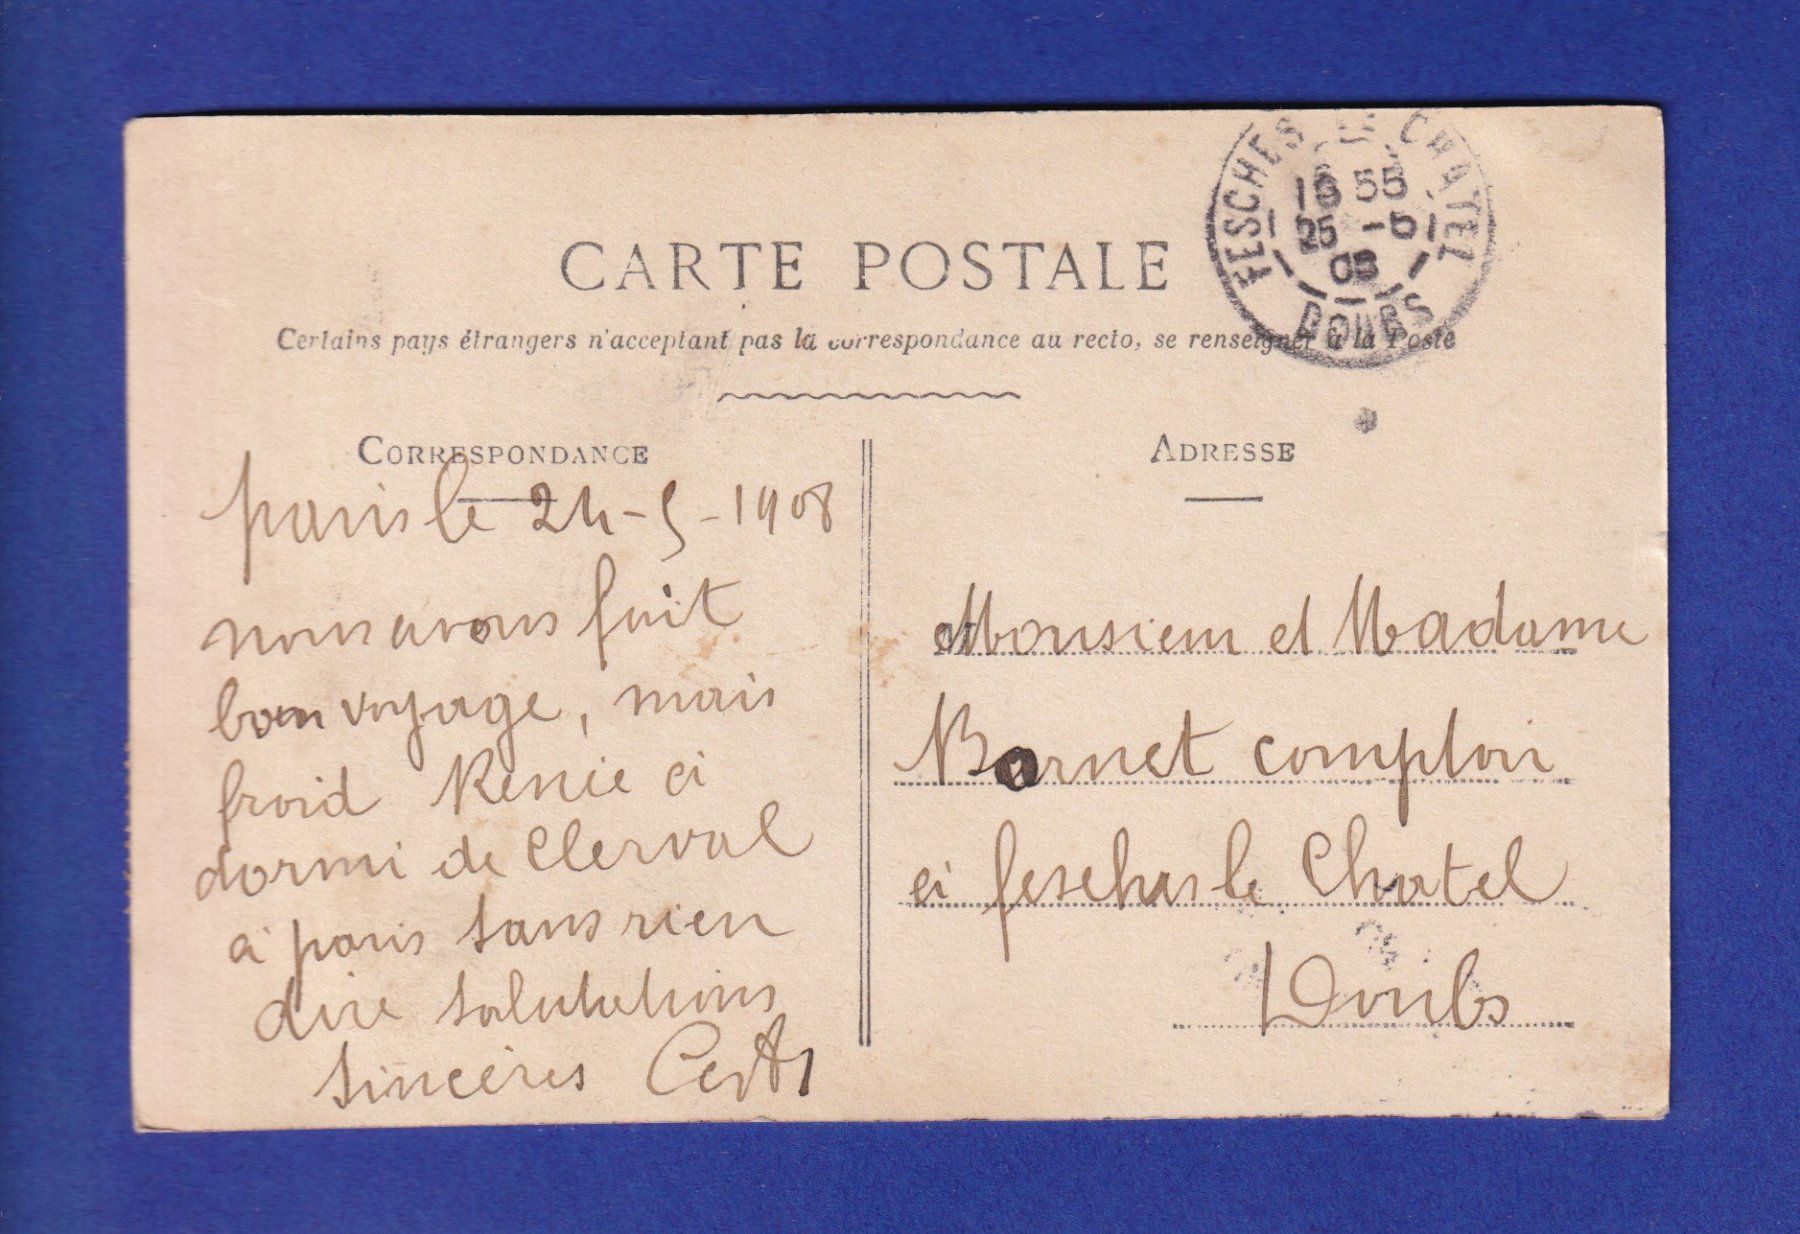 CARTE POSTALE
Certains pays étrangers n'acceptant pas la correspondance au recto, se renseigner à la Poste
FESCHES LE CHATEL
18 55
25 -5
08
DOUBS
CORRESPONDANCE
paris le 24-5-1908
nous avons fait
bon voyage, mais
froid Renée a
dormi de Clerval
a paris sans rien
dire salutations
sincères
ADRESSE
Monsieur et Madame
Barnet comptoir
a fesches le Chatel
Doubs